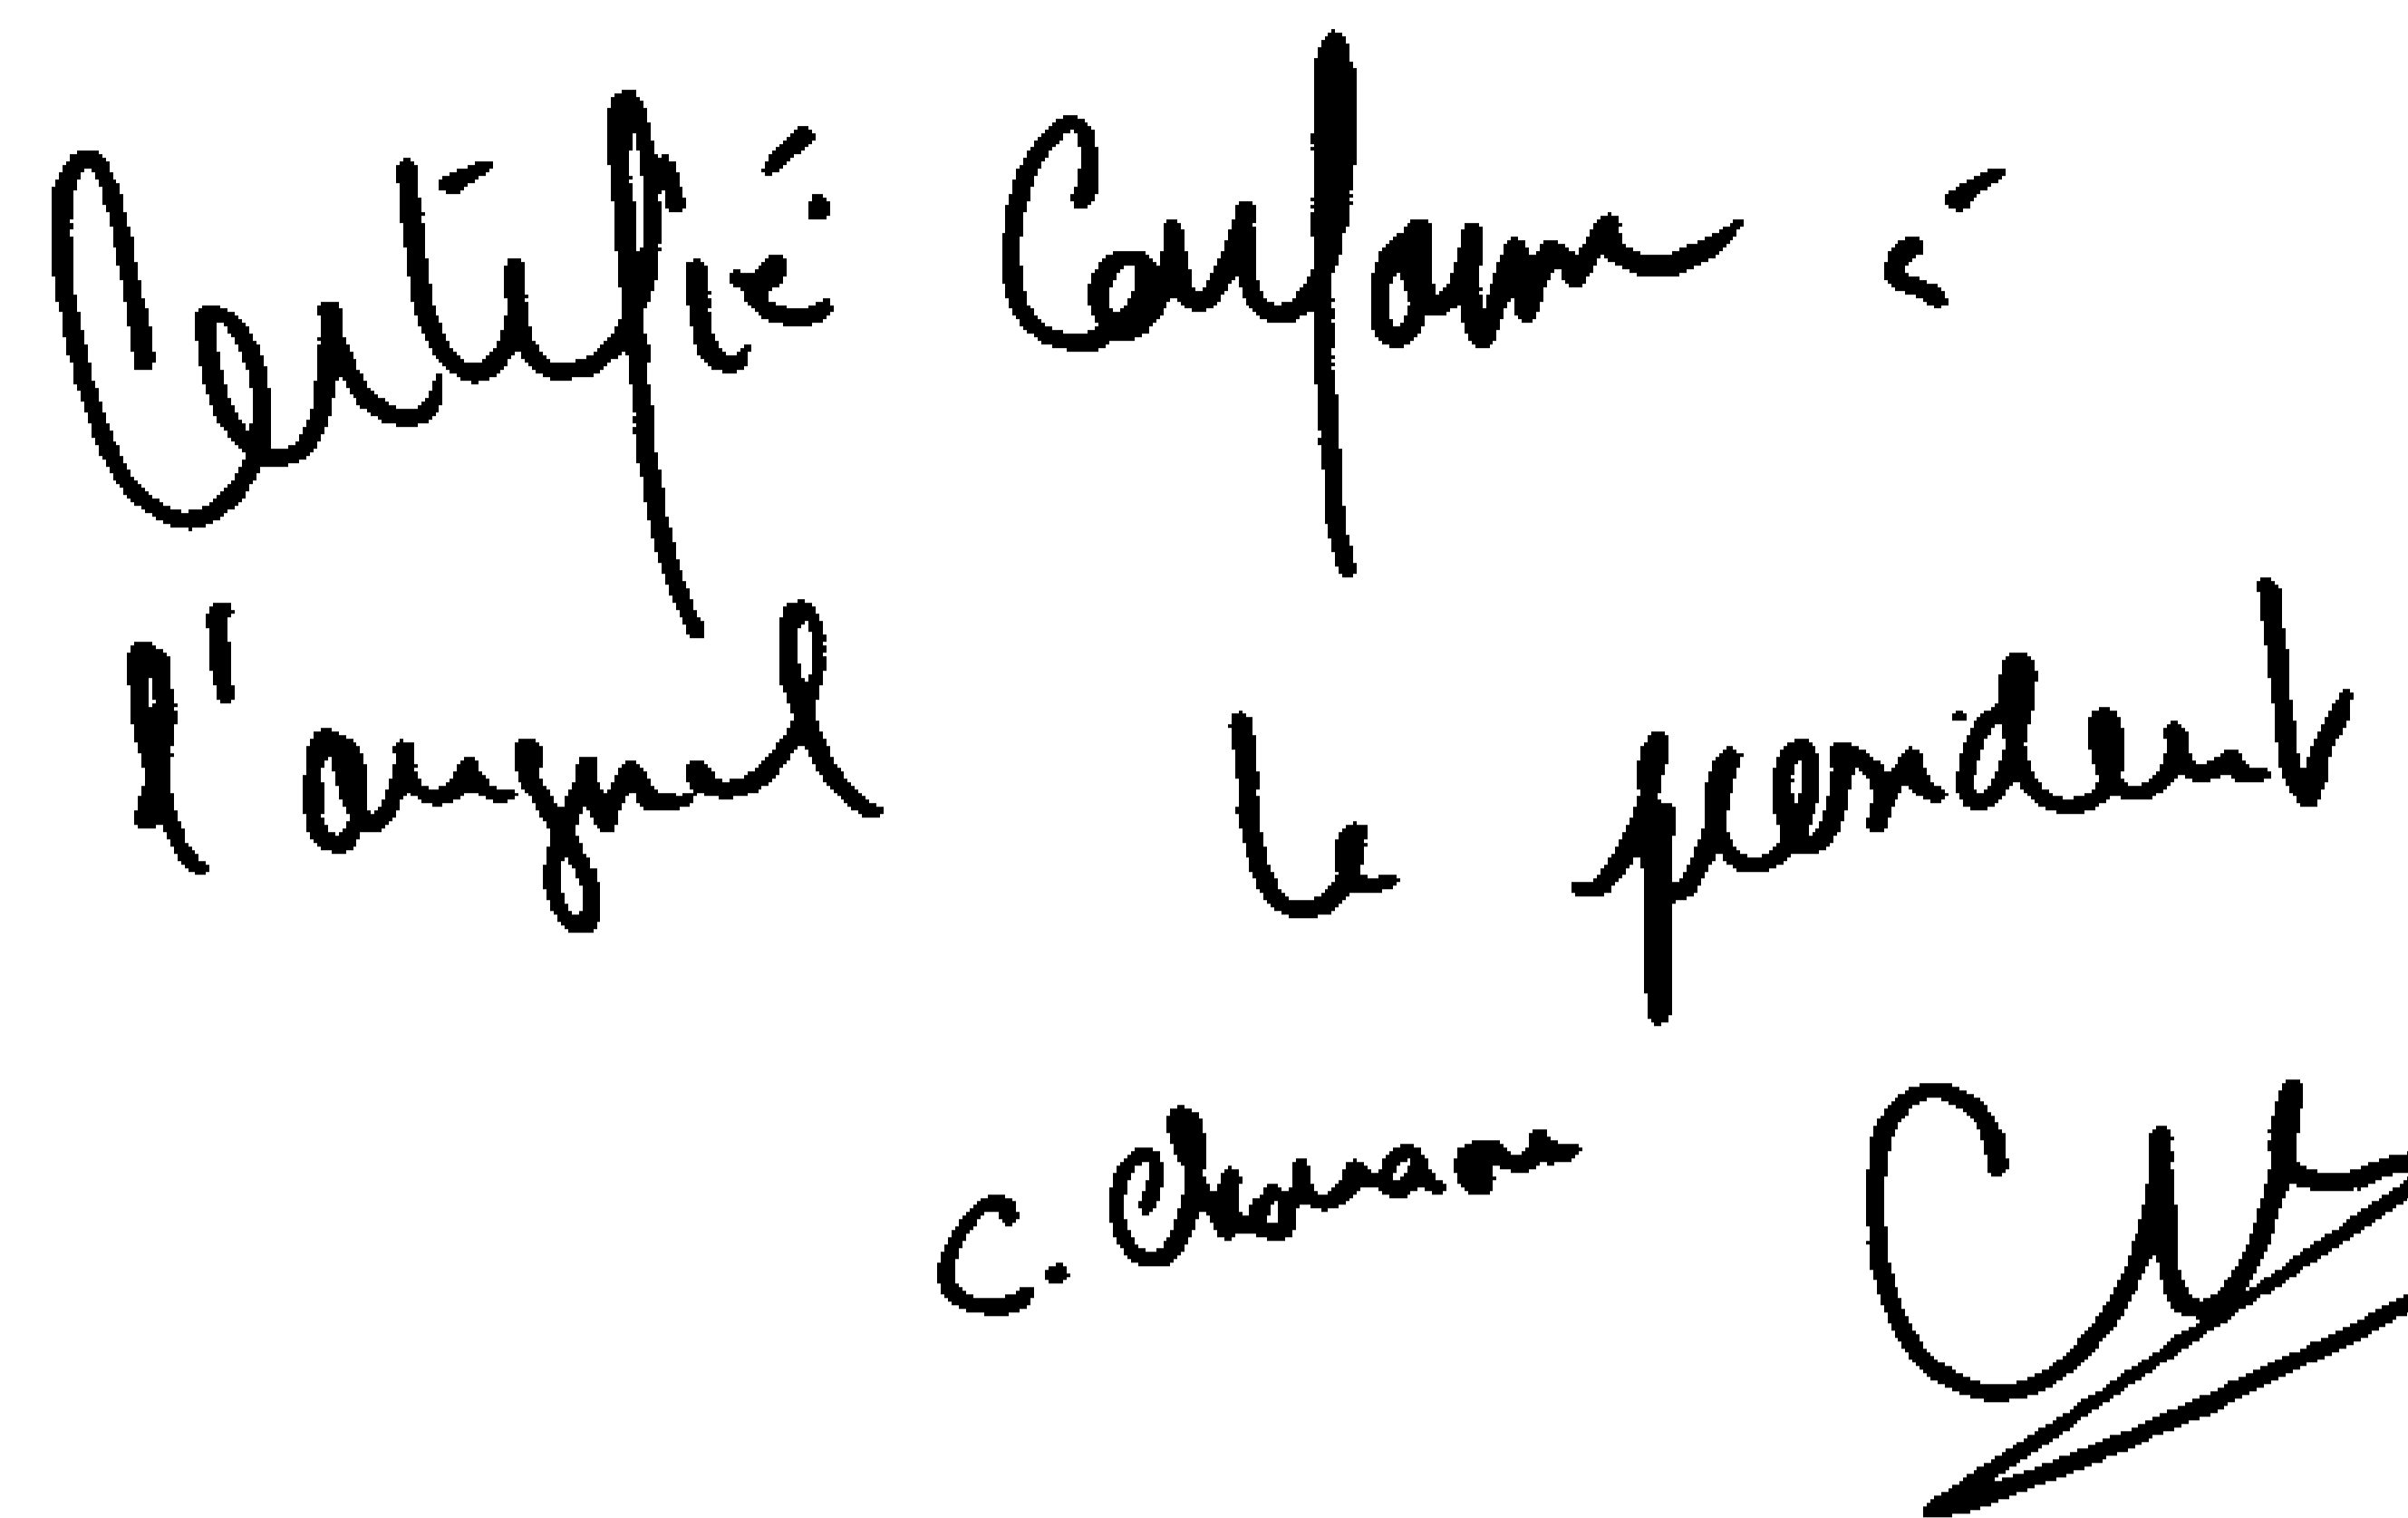 Certifié Conforme à
l'original Le président
C.